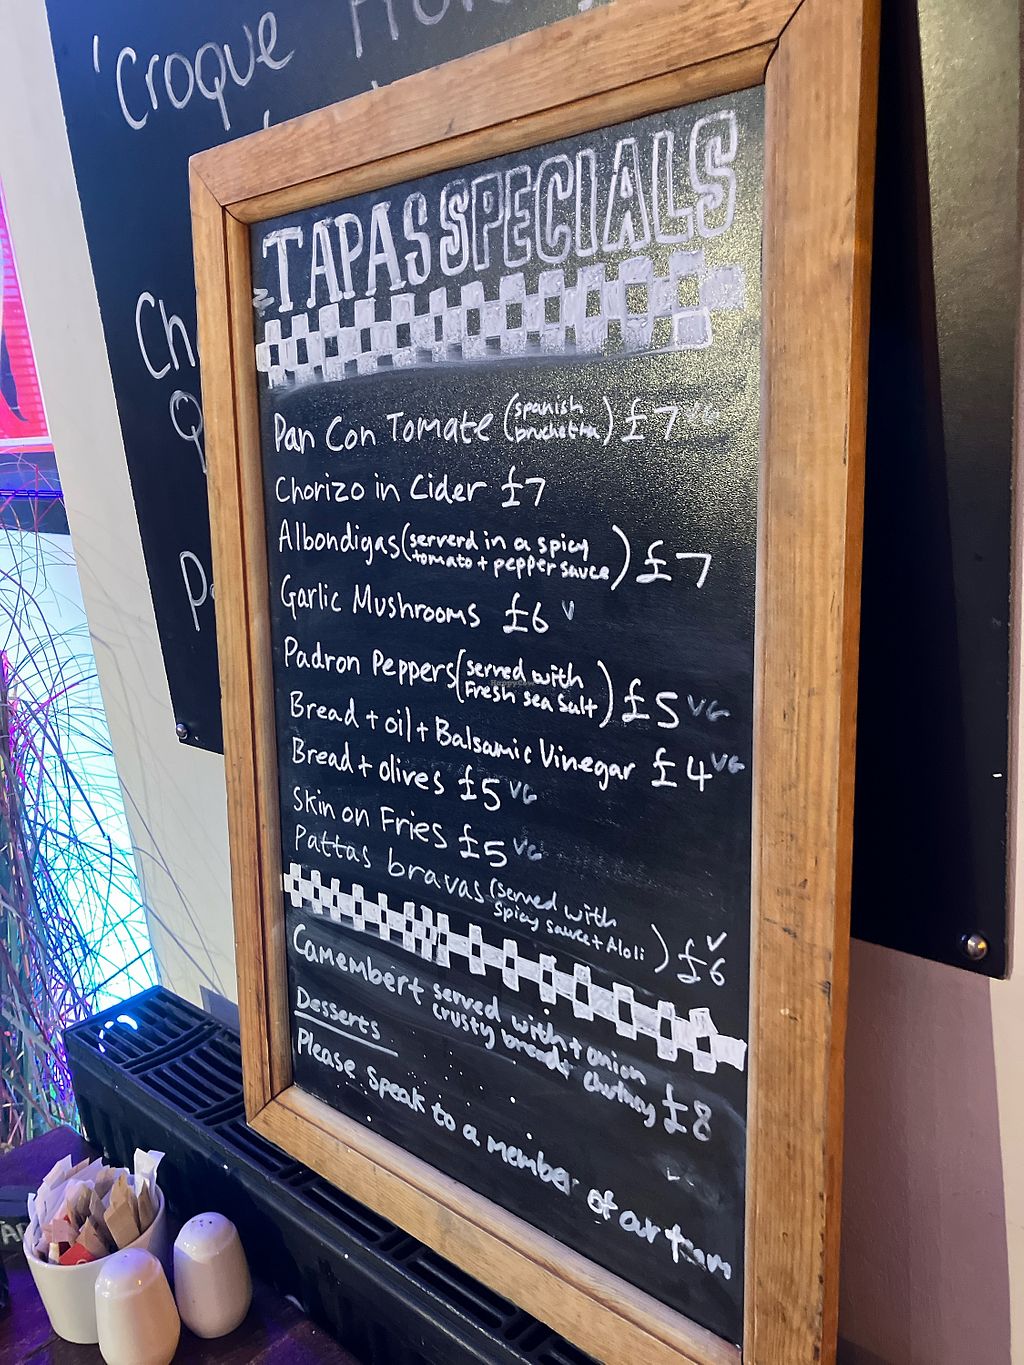 'Croque
Ch
Q
P
TAPAS SPECIALS
Pan Con Tomate (spanish bruchetta) £7 VG
Chorizo in Cider £7
Albondigas (serverd in a spicy tomato + pepper sauce) £7
Garlic Mushrooms £6 V
Padron Peppers (served with Fresh sea salt) £5 VG
Bread + oil + Balsamic Vinegar £4 VG
Bread + olives £5 VG
Skin on Fries £5 VG
Pattas bravas (served with Spicy sauce + Aloli) £6 V
Camembert served with + onion crusty bread + chutney £8
Desserts
Please Speak to a member of our team